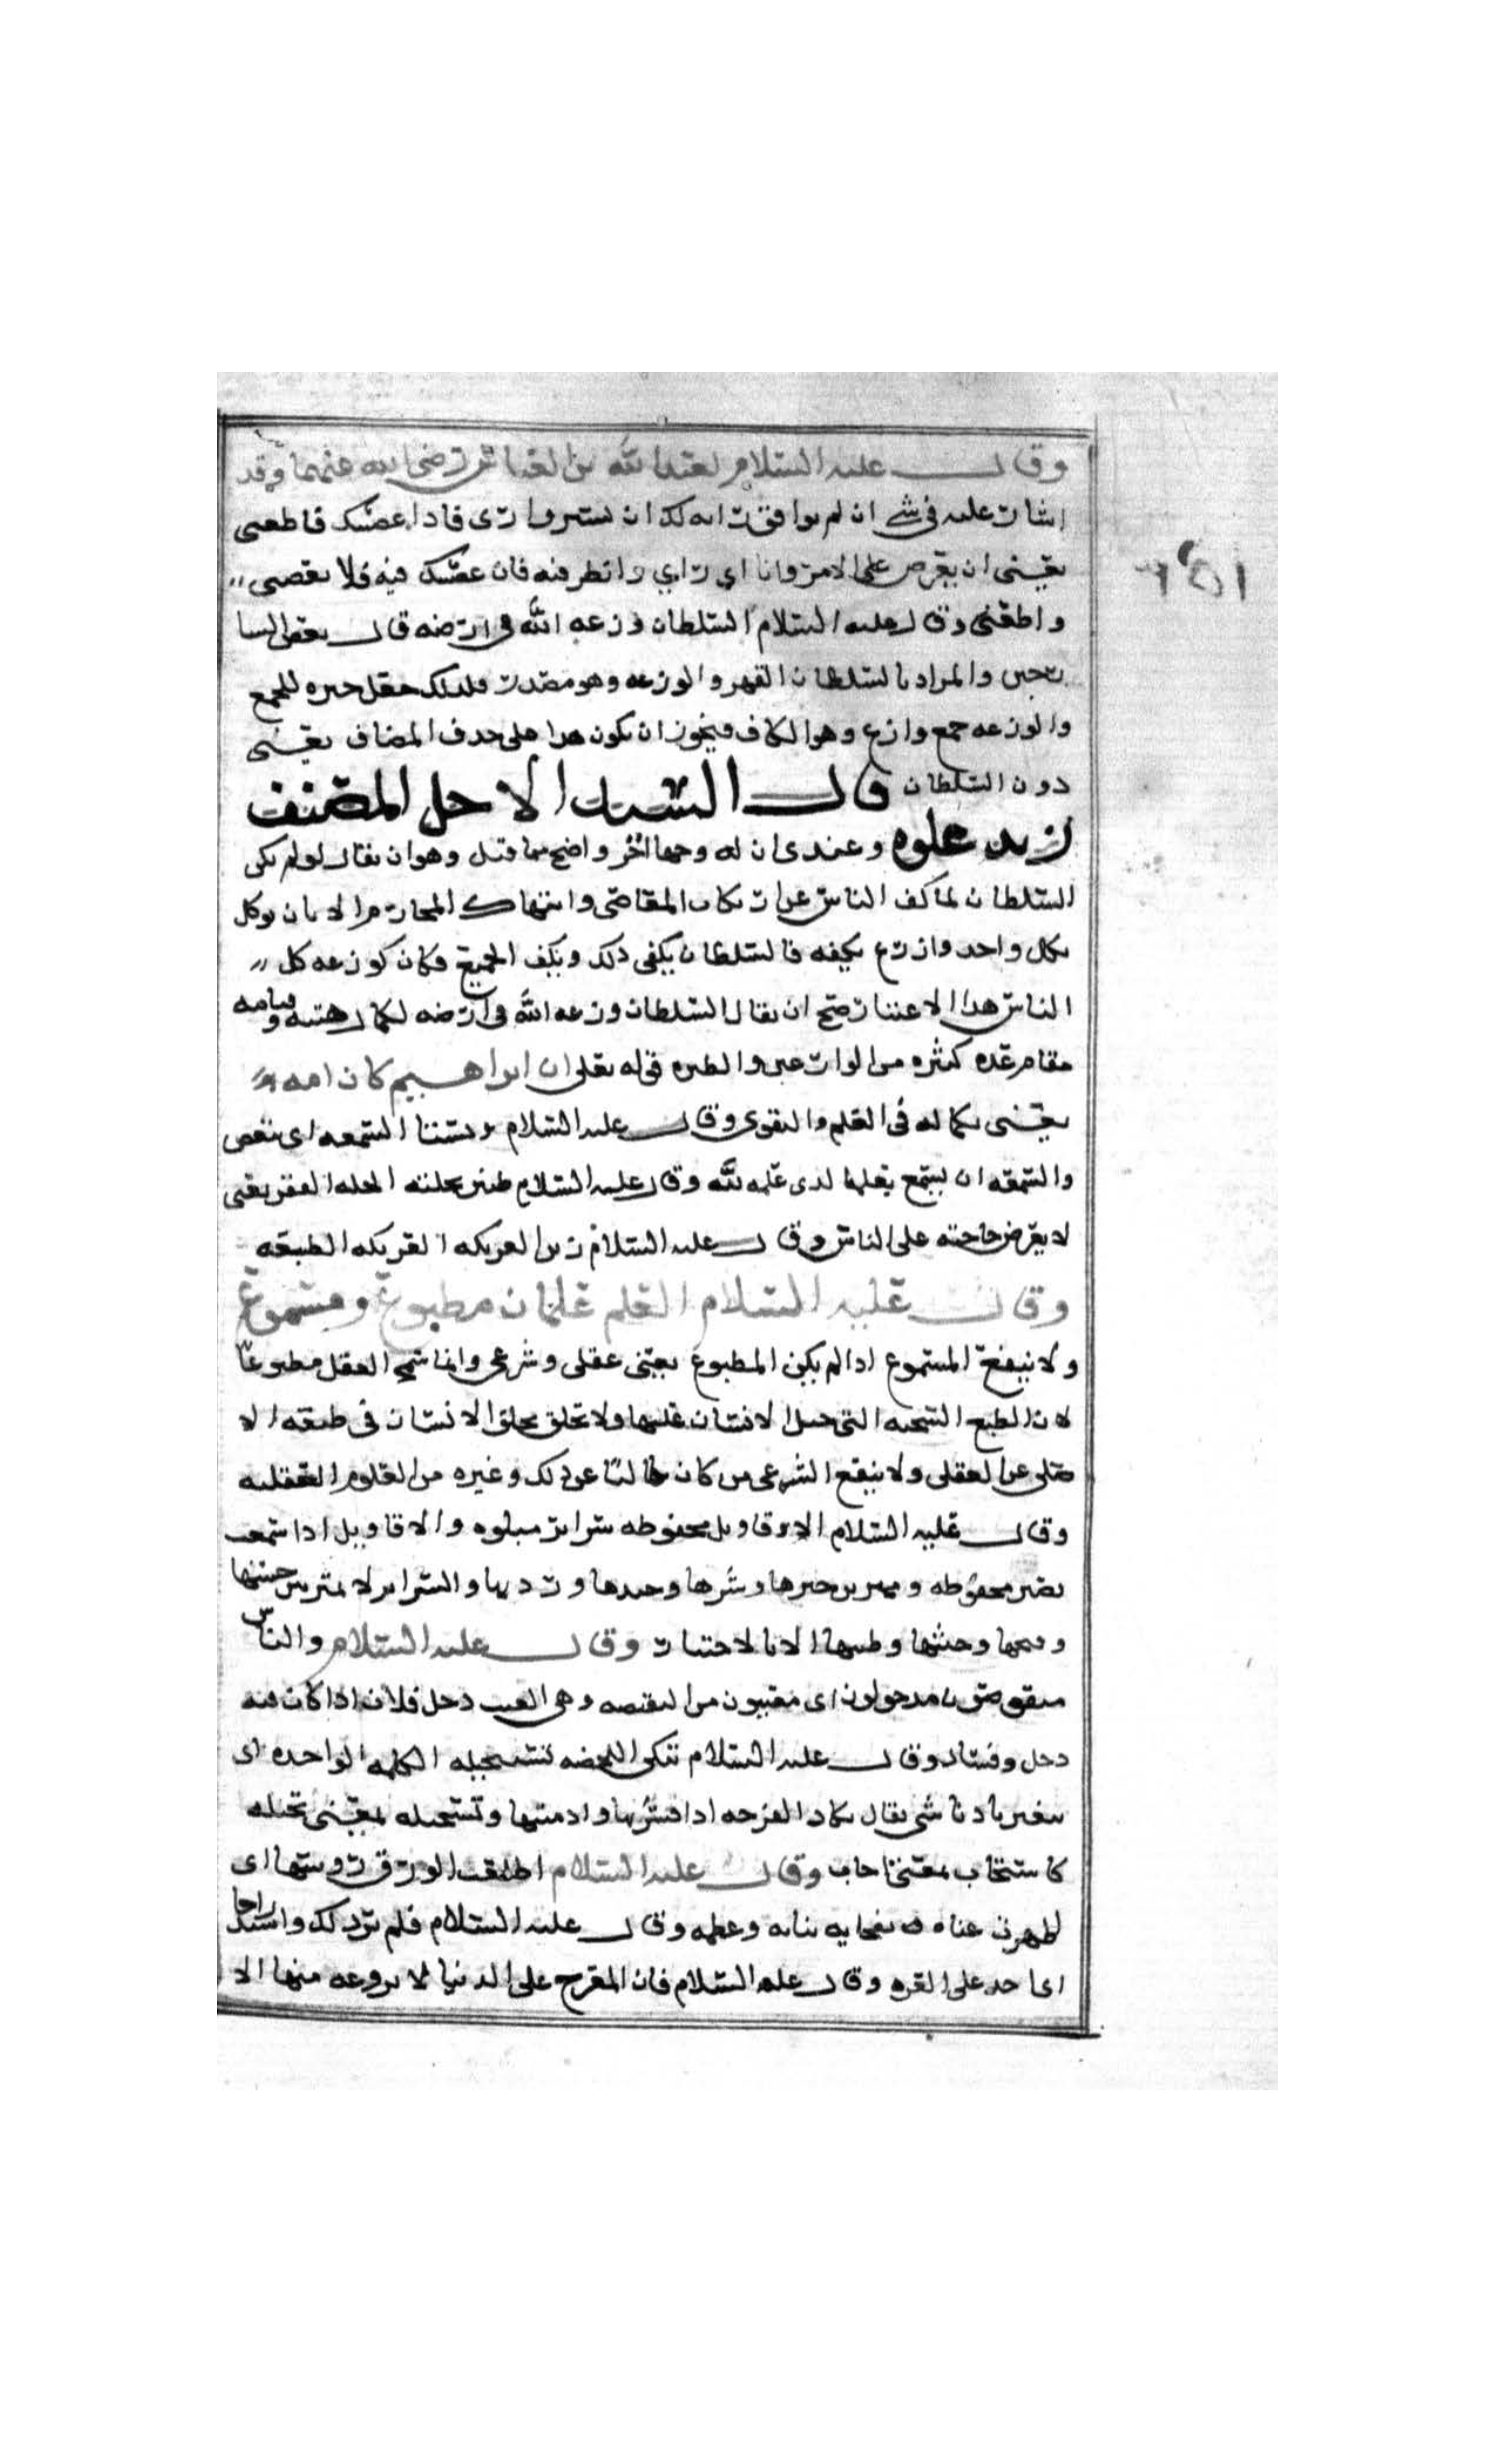 وقال عليه السلام لعبد الله بن العباس رضي الله عنهما وقد
اشار عليه في شي ان لم يوافق رايه لك ان تشير وارى فاذا عصيتك فاطعني
يعني ان تعرض على الامر وانا اي رايي وانظر فيه فان عصيتك فيه فلا تعصني
واطعني وقال عليه السلام السلطان وزعه الله في ارضه قال بعض
والمراد بالسلطان القهر والوزعه وهو مصدر فلذلك جعل خبره للجمع
والوزعه جمع وازع وهو الكاف فيجوز ان يكون هذا على حذف المضاف يعني
دون السلطان قال السيد الاجل المصنف
زيد علوه وعندي ان له وجها اخر واضح مما قيل وهو ان يقال لو لم يكن
السلطان لما كف الناس عن ارتكاب المعاصي وانتهاك المحارم الا بان يوكل
بكل واحد وازع يكفه فالسلطان يكفي ذلك ويكف الجميع فكان كوزعه كل
الناس هذا الاعتبار صح ان يقال السلطان وزعه الله في ارضه لكمال هيبته وقيامه
مقام عده كثيره من الوازعين والطيره قوله تعلى ان ابراهيم كان امه
يعني بكماله في العلم والتقوى وقال عليه السلام ويشنا السمعه اي يبغض
والسمعه ان يسمع بعلمها لدى علمه لله وقال عليه السلام ضنين بخلته الخله الفقر يعني
لا يعرض حاجته على الناس وقال عليه السلام لين العريكه العريكه الطبيعه
وقال عليه السلام العلم علمان مطبوع ومسموع
ولا ينفع المسموع اذا لم يكن المطبوع يعني عقلى وشرعى وانما سمي العقل مطبوعا
لان الطبع السجيه التي جبل الانسان عليها ولا تخلق الانسان في طبعه الا
عن العقلى ولا ينفع الشرعى من كان خاليا عن ذلك وغيره من العلوم العقليه
وقال عليه السلام الاقاويل محفوظه سراير مبلوه والاقاويل اذا سمعت
تصير محفوظه ويميز بين خيرها وشرها وجيدها ورديها والسراير لا يميز بين حسنها
وقبحها وخبثها وطيبها الا بالاختبار وقال عليه السلام والناس
منقوصون مدخولون اي معيبون من النقيصه وهي العيب دخل فلان اذا كان فيه
دخل وفساد وقال عليه السلام تنكى اللحضه تستحيله الكلمه الواحده اي
يتغير بادنا شي يقال نكات القرحه اذا قشرتها وادميتها وتستحيله بمعنى تحيله
كاستجاب بمعنى اجاب وقال عليه السلام اطلقت الورق روسها اي
اظهرت وعظمه وقال عليه السلام فلم يزد لك واشتد
اي اخذ على القره وقال عليه السلام فان المعرج على الدنيا لا يروعه منها الا